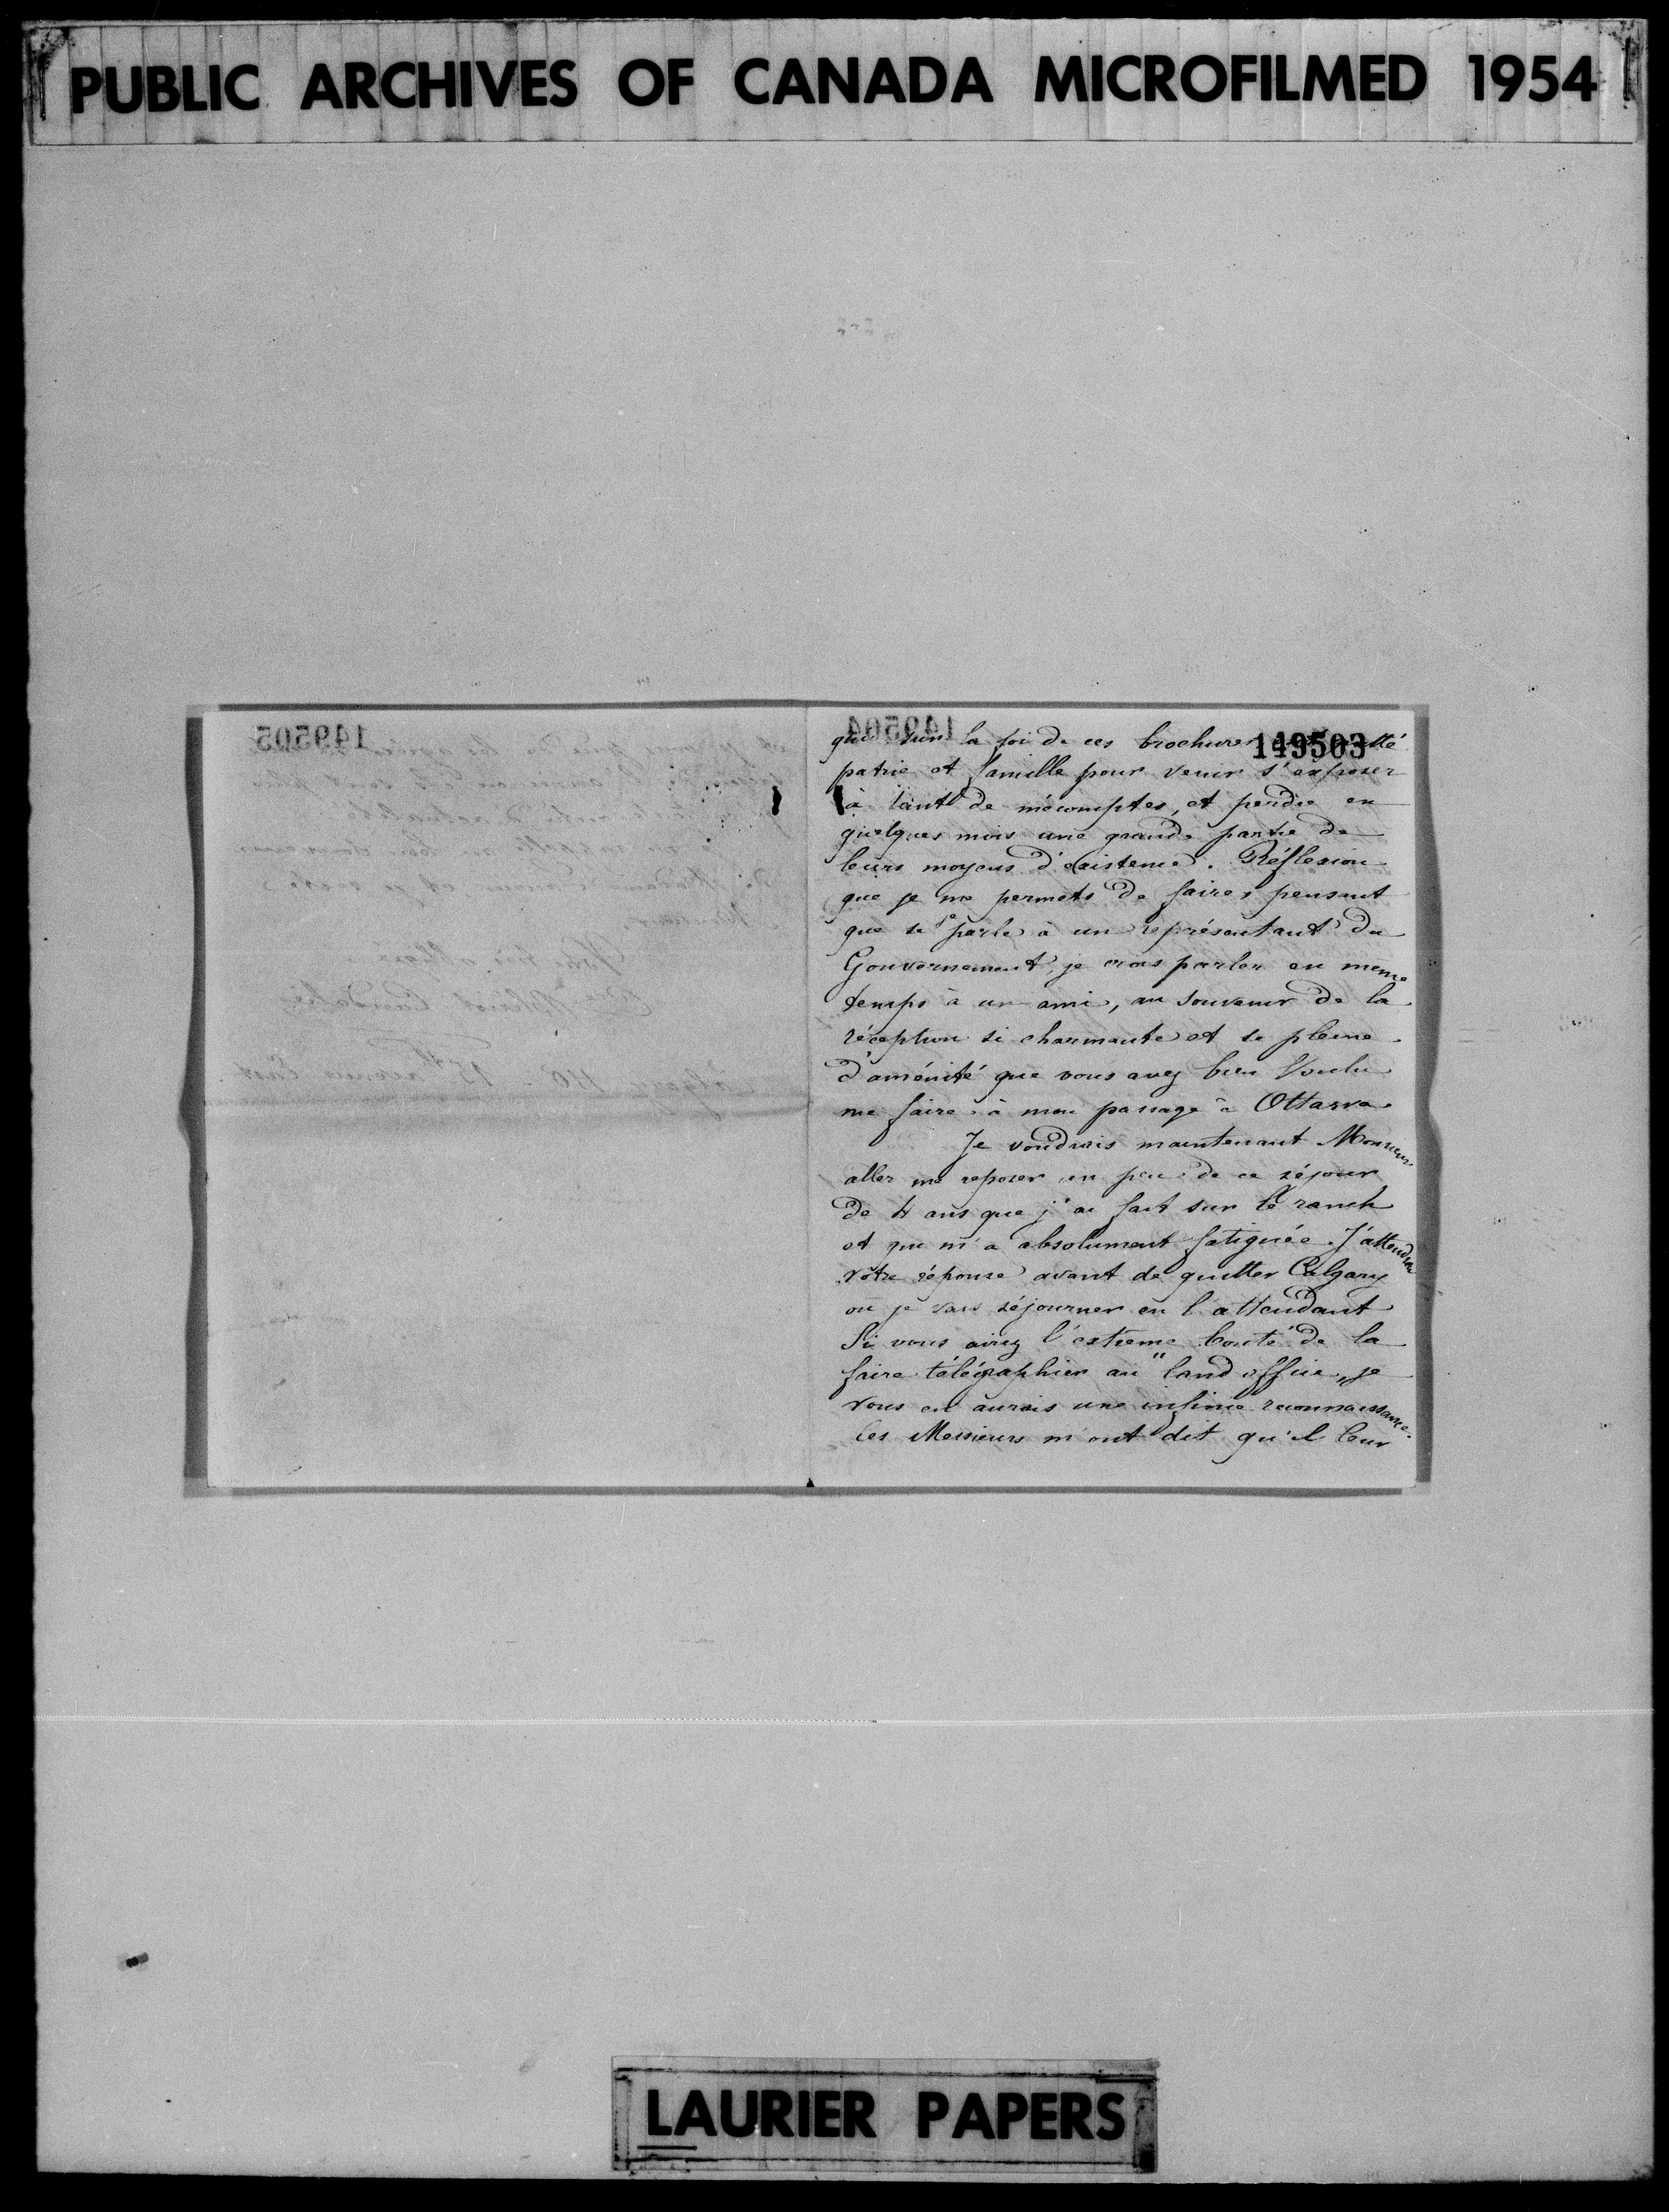 PUBLIC ARCHIVES OF CANADA MICROFILMED 1954
149505
149504
149503
qui sur la foi de ces brochures ont quitté
patrie et famille pour venir s'exposer
à tant de mécomptes, et perdre en
quelques mois une grande partie de
leurs moyens d'existence. Réflexion
que je me permets de faire, pensant
que si je parle à un représentant du
Gouvernement, je crois parler en meme
temps à un ami, au souvenir de la
réception si charmante et si pleine
d'aménité que vous avez bien voulu
me faire à mon passage à Ottawa
Je voudrais maintenant Monsieur
aller me reposer un peu de ce séjour
de 4 ans que j'ai fait sur le ranch
et qui m'a absolument fatiguée. J'attendrai
votre réponse avant de quitter Calgary
où je vais séjourner en l'attendant
Si vous aviez l'extrême bonté de la
faire télégraphier au "land office" je
vous en aurais une infinie reconnaissance.
Ces Messieurs m'ont dit qu'il leur
LAURIER PAPERS